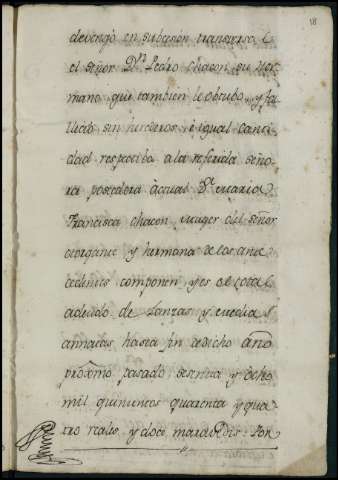 18
devengó en subcesion transversal
el señor Dn. Pedro chacon su her-
mano que tambien le obtubo, y fa-
llecio sin herederos: é igual canti-
dad respectiba a la referida seño-
ra poseedora actual Da. Maria
Francisca chacon, muger del señor
otorgante y hermana de los ante-
cedentes componen, y es el total
adeudo de Lanzas y media s
annatas hasta fin de dicho año
proximo pasado de y ocho
mil quinientos quarenta y qua-
tro reales y doce maravedis: Por